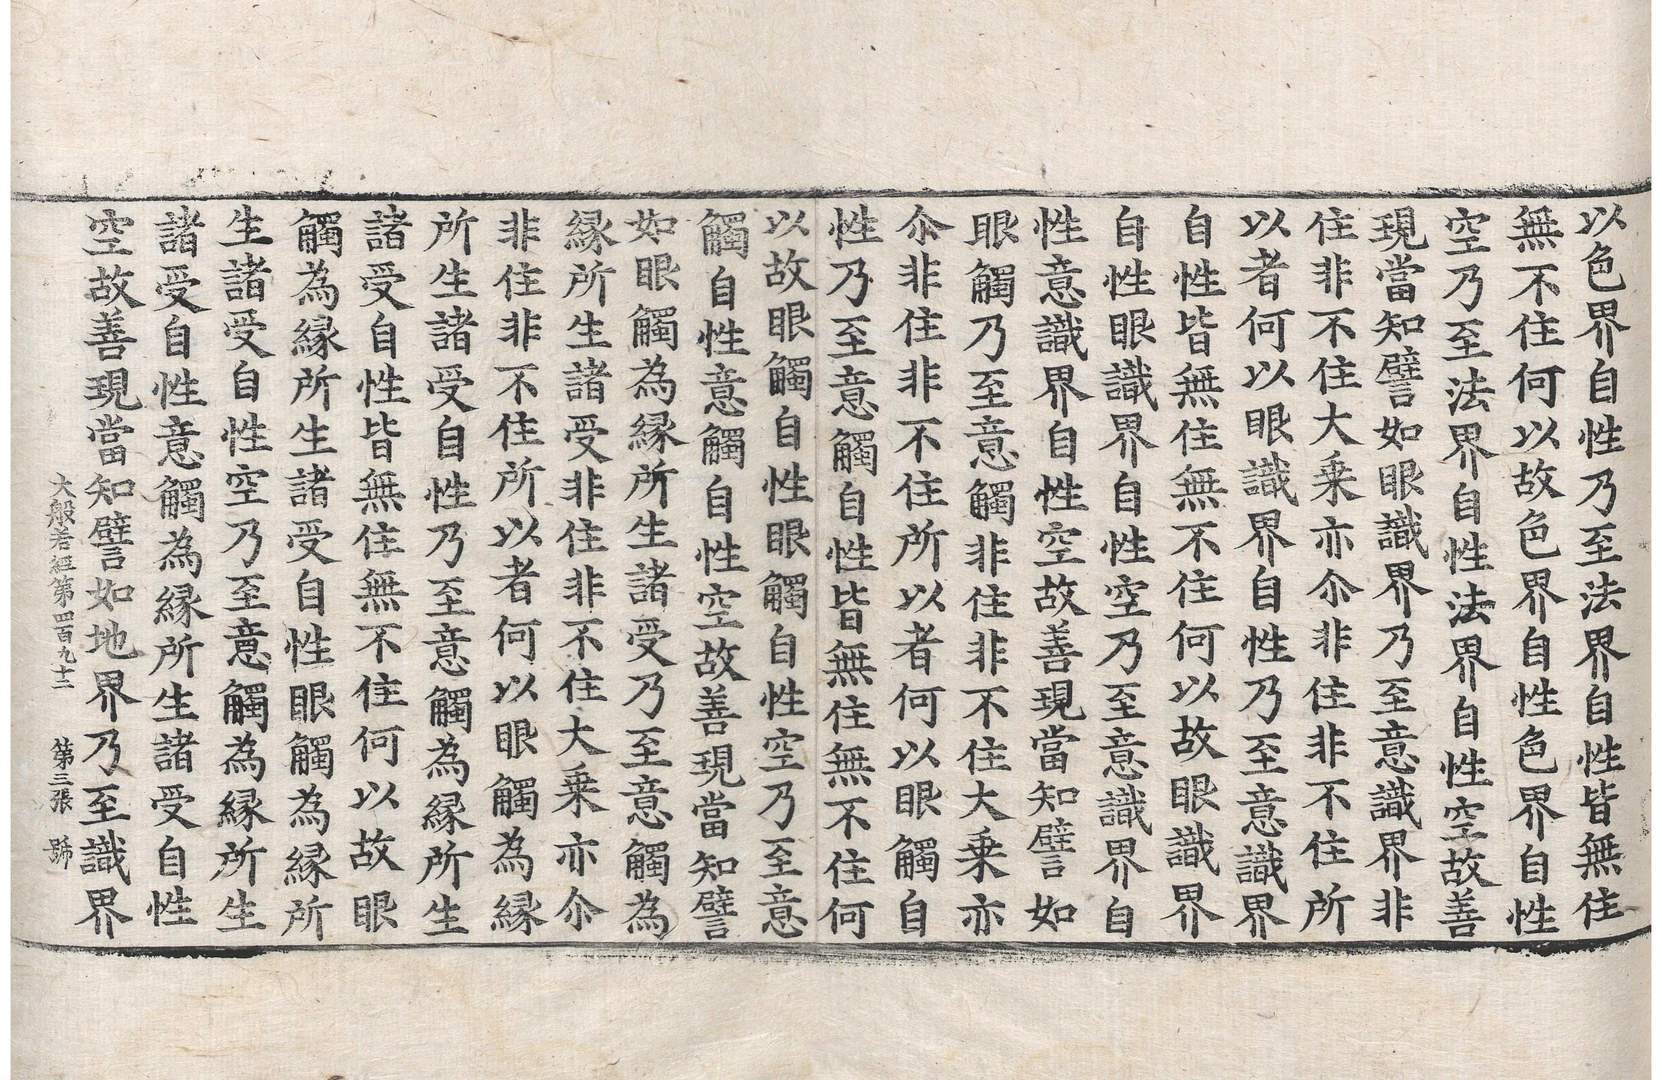 以色界自性乃至法界自性皆無住
無不住何以故色界自性色界自性
空乃至法界自性法界自性空故善
現當知譬如眼識界乃至意識界非
住非不住大乗亦尒非住非不住所
以者何以眼識界自性乃至意識界
自性皆無住無不住何以故眼識界
自性眼識界自性空乃至意識界自
性意識界自性空故善現當知譬如
眼觸乃至意觸非住非不住大乗亦
尒非住非不住所以者何以眼觸自
性乃至意觸自性皆無住無不住何
以故眼觸自性眼觸自性空乃至意
觸自性意觸自性空故善現當知譬
如眼觸為縁所生諸受乃至意觸為
縁所生諸受非住非不住大乗亦尒
非住非不住所以者何以眼觸為縁
所生諸受自性乃至意觸為縁所生
諸受自性皆無住無不住何以故眼
觸為縁所生諸受自性眼觸為縁所
生諸受自性空乃至意觸為縁所生
諸受自性意觸為縁所生諸受自性
空故善現當知譬如地界乃至識界
大般若經第四百九十二 第三張 號